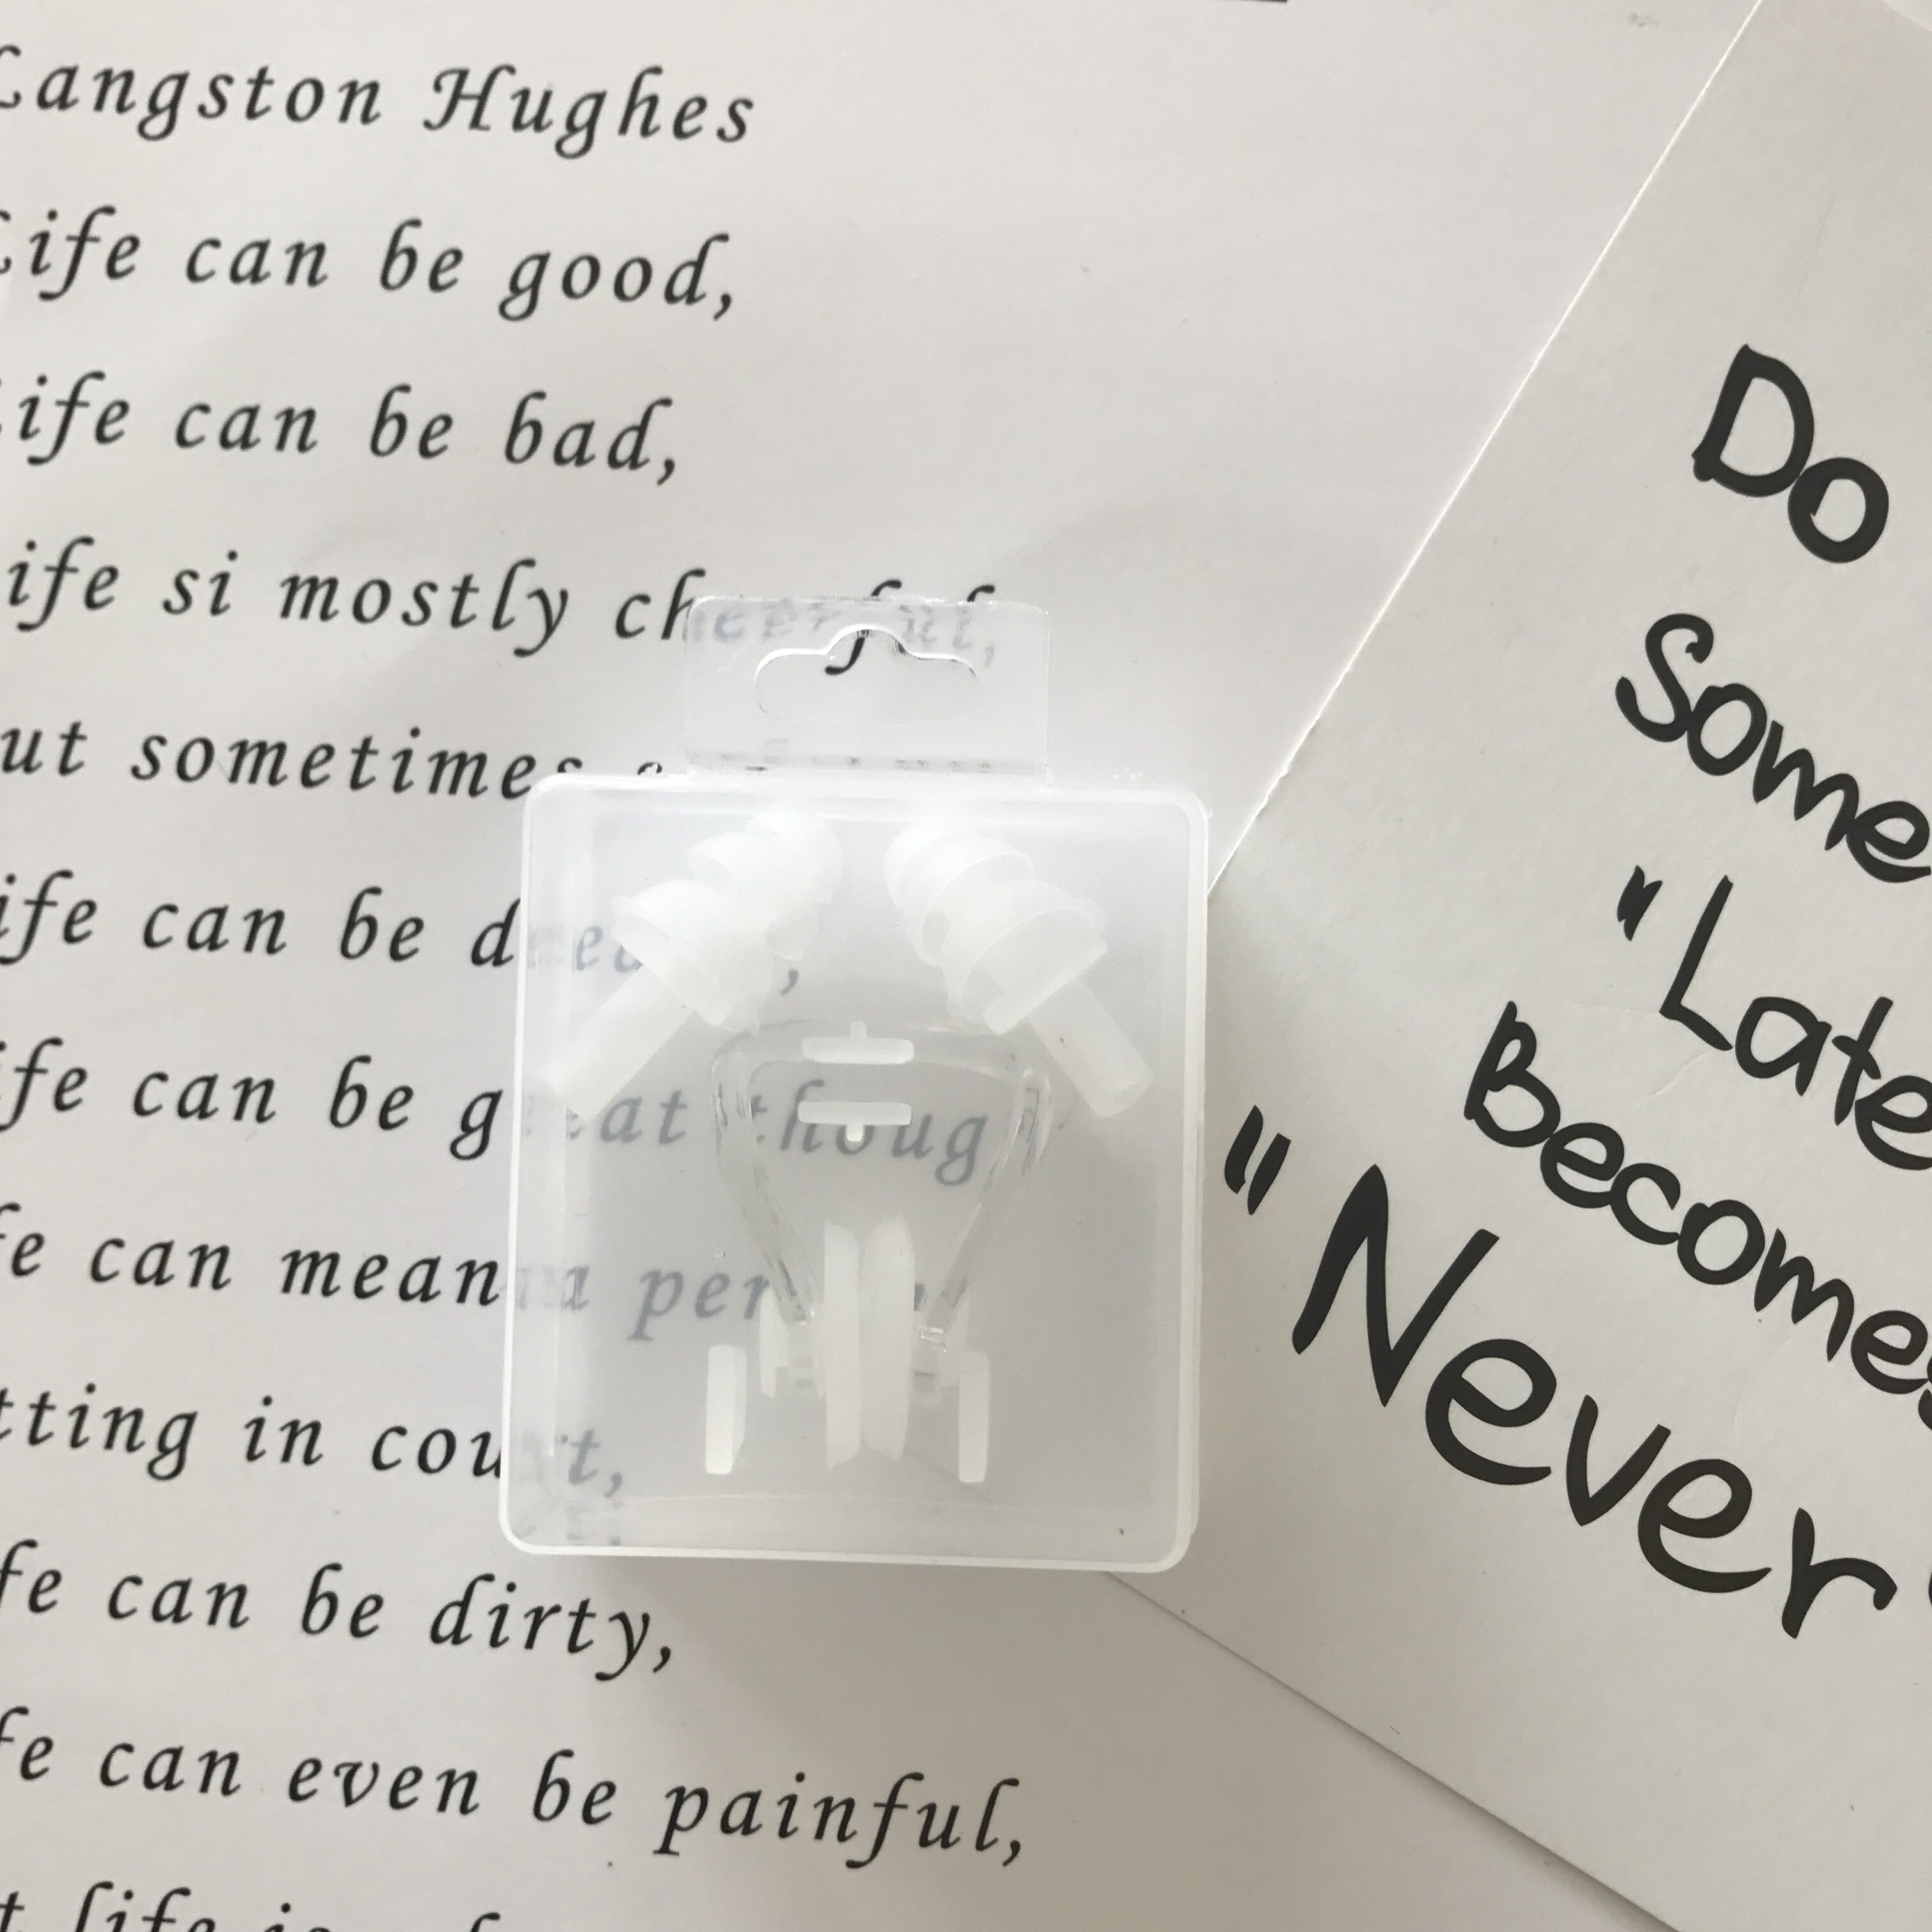 Langston Hughes
Life can be good,
Life can be bad,
Life si mostly cheerful,
but sometimes
Life can be
Life can be great thoug
Life can mean a per
tting in court,
Life can be dirty,
Life can even be painful,
life
Do
Some
"Late
Becomes
"Never